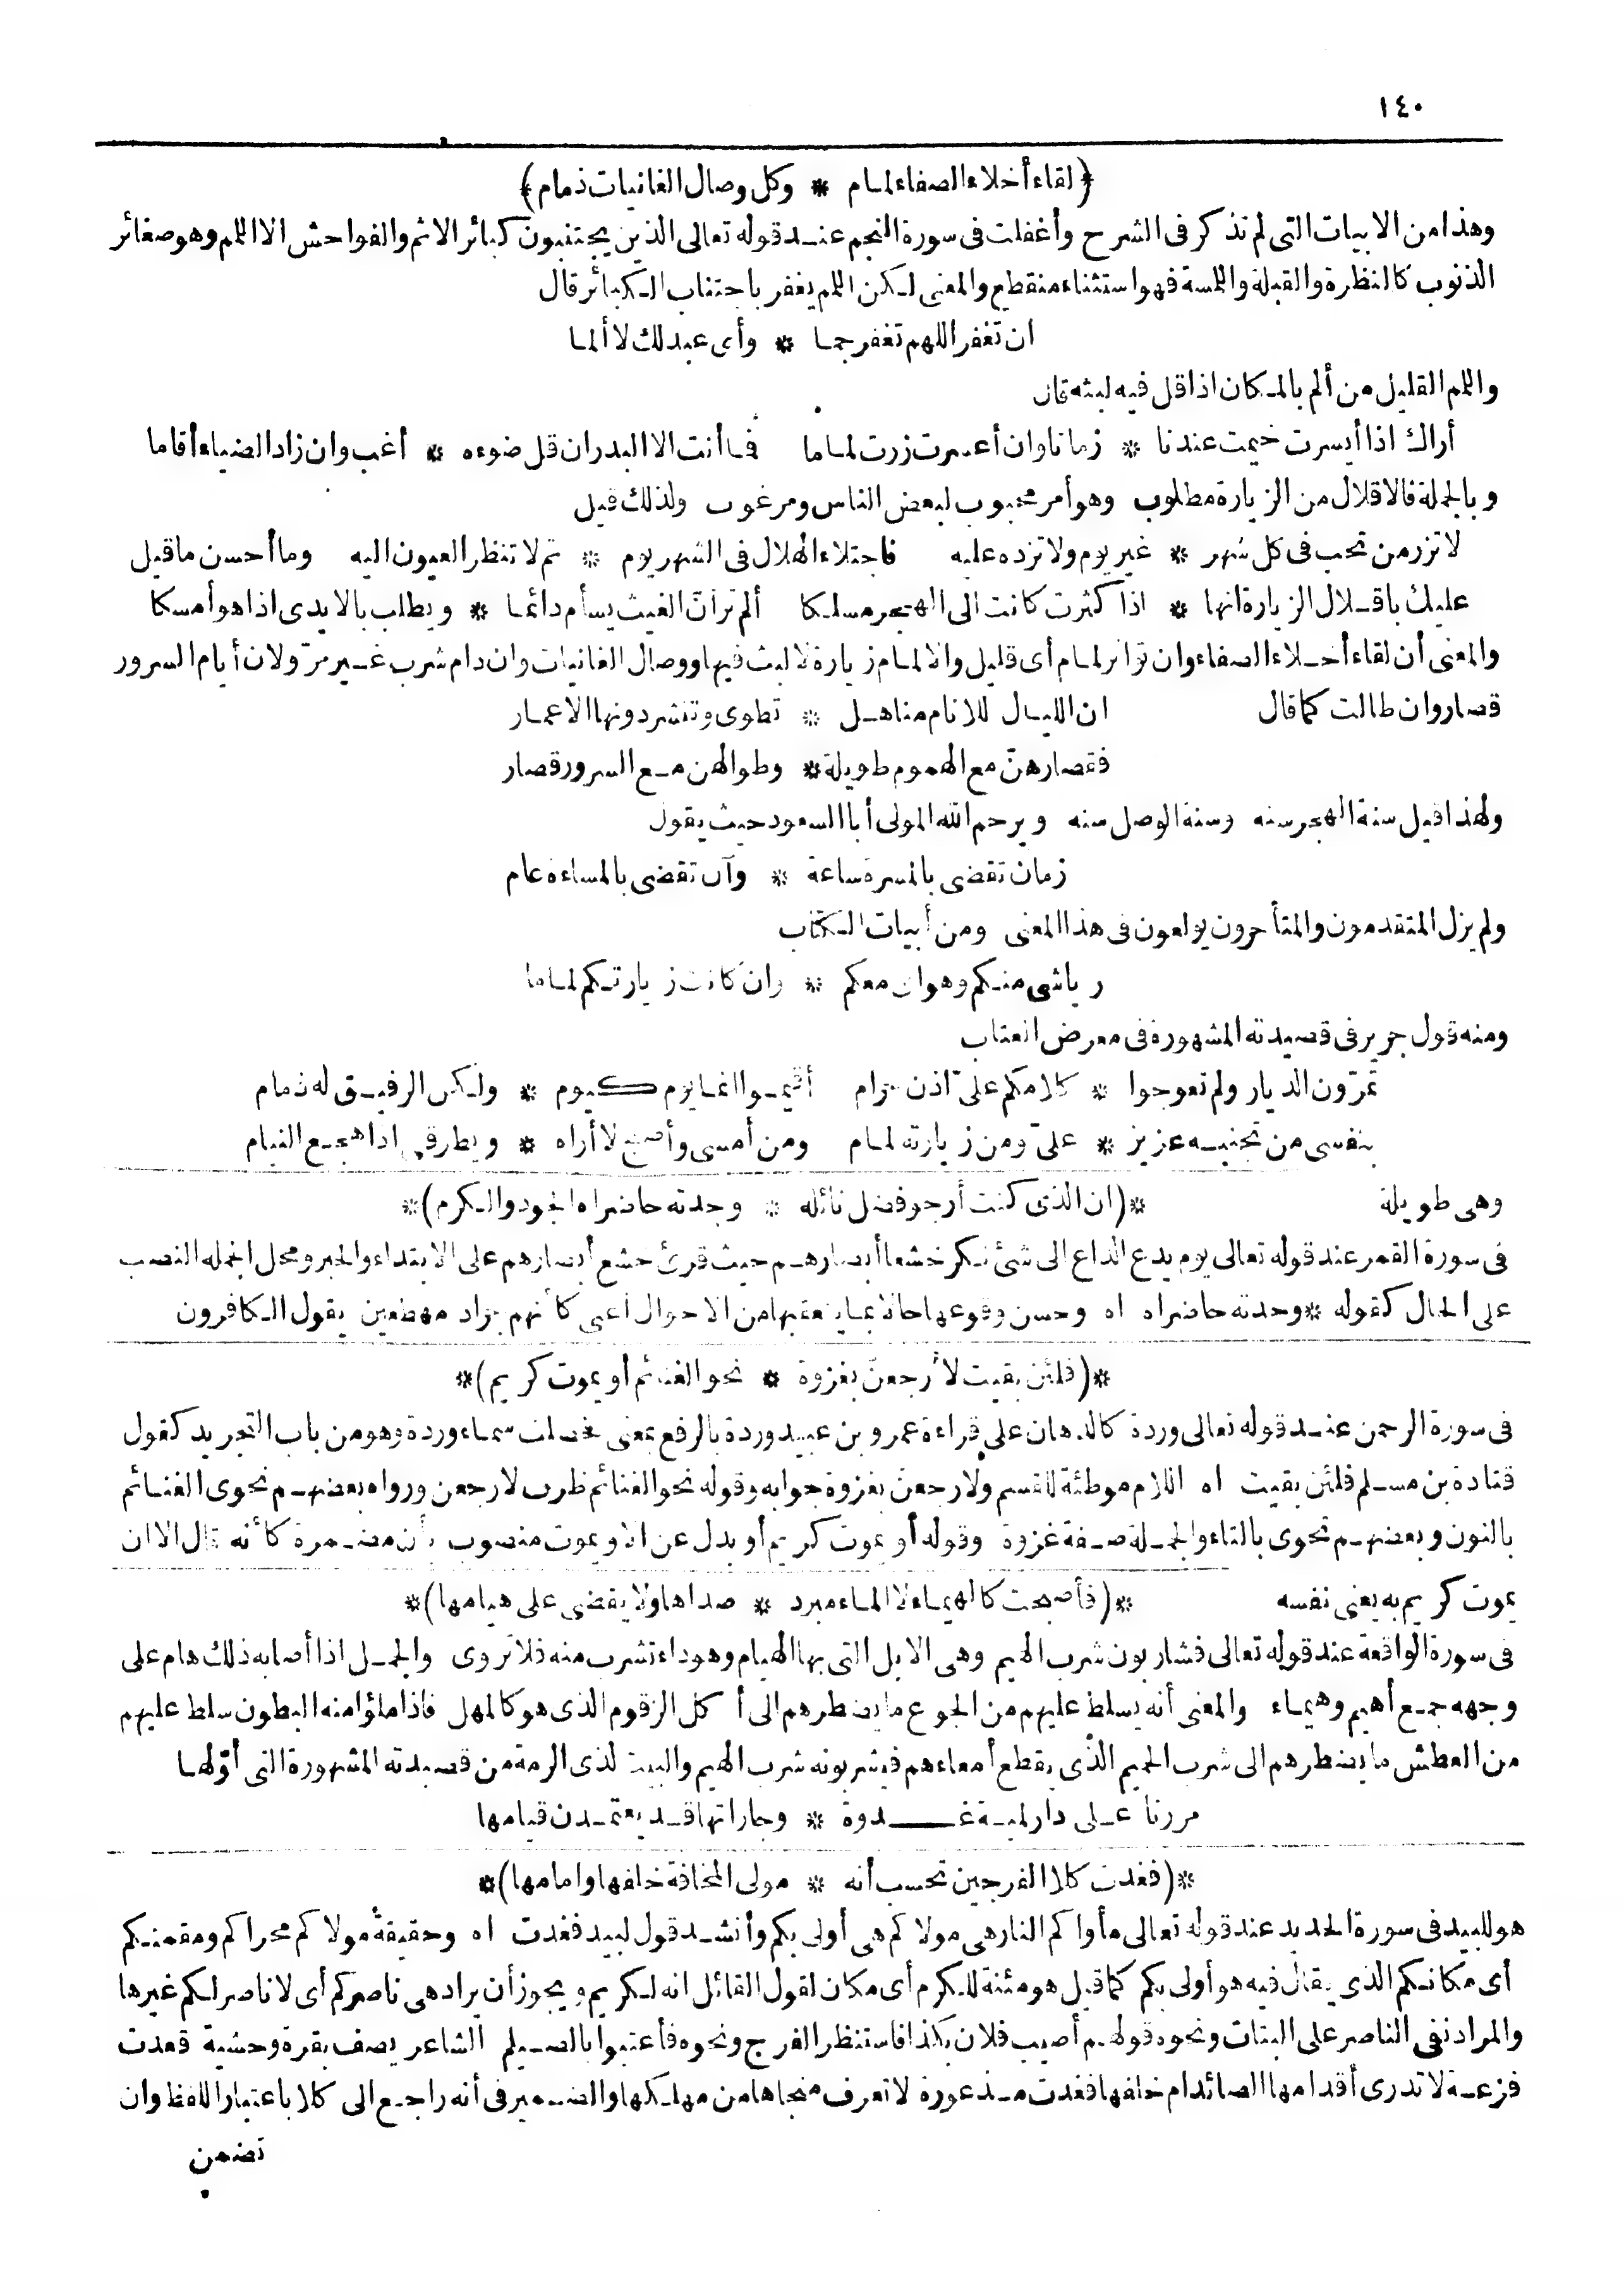 ١٤٠
﴿لقاء أخلاء الصفاء لمام * وكل وصال الغانيات ذمام﴾
وهذا من الابيات التى لم تذكر فى الشرح وأغفلت فى سورة النجم عند قوله تعالى الذين يجتنبون كبائر الاثم والفواحش الا اللمم وهو صغائر
الذنوب كالنظرة والقبلة واللمسة فهو استثناء منقطع والمعنى لكن اللمم يغفر باجتناب الكبائر قال
ان تغفر اللهم تغفر جما * وأى عبد لك لا ألما
واللمم القليل من ألم بالمكان اذا قل فيه لبثه قال
أراك اذا أيسرت خيمت عندنا * زمانا وان أعسرت زرت لماما فما أنت الا البدر ان قل ضوءه * أغب وان زاد الضياء أقاما
وبالجملة فالاقلال من الزيارة مطلوب وهو أمر محبوب لبعض الناس ومرغوب ولذلك قيل
لا تزر من تحب فى كل شهر * غير يوم ولا تزده عليه فاجتلاء الهلال فى الشهر يوم * ثم لا تنظر العيون اليه وما أحسن ما قيل
عليك باقلال الزيارة انها * اذا كثرت كانت الى الهجر مسلكا ألم تر أن الغيث يسأم دائما * ويطلب بالايدى اذا هو أمسكا
والمعنى أن لقاء أخلاء الصفاء وان تواتر لمام أى قليل والالمام زيارة لا لبث فيها ووصال الغانيات وان دام شرب غير مر ولان أيام السرور
قصار وان طالت كما قال ان الليال للانام مناهل * تطوى وتنشر دونها الاعمار
فقصارهن مع الهموم طويلة * وطوالهن مع السرور قصار
ولهذا قيل سنة الهجر سنه وسنة الوصل سنه ويرحم الله المولى أبا السعود حيث يقول
زمان تقضى بالمسرة ساعة * وآن تقضى بالمساءة عام
ولم يزل المتقدمون والمتأخرون يولعون فى هذا المعنى ومن أبيات الكتاب
رياشى منكم وهواى معكم * وان كانت زيارتكم لماما
ومنه قول جرير فى قصيدته المشهورة فى معرض العتاب
تمرّون الديار ولم تعوجوا * كلامكم علىّ اذن حرام أقيموا انما يوم كيوم * ولكن الرفيق له ذمام
بنفسى من تجنبه عزيز * علىّ ومن زيارته لمام ومن أمسى وأصبح لا أراه * ويطرقنى اذا هجع النيام
وهى طويلة *(ان الذى كنت أرجو فضل نائله * وجدته حاضراه الجود والكرم)*
فى سورة القمر عند قوله تعالى يوم يدع الداع الى شئ نكر خشعا أبصارهم حيث قرئ خشع أبصارهم على الابتداء والخبر ومحل الجملة النصب
على الحال كقوله * وجدته حاضراه اه وحسن وقوعها حالا عما يعقبها من الاحوال أعنى كأنهم جراد مهطعين يقول الكافرون
*(فلئن بقيت لأرجعنّ بغزوة * نحو الغنائم أو يموت كريم)*
فى سورة الرحمن عند قوله تعالى وردة كالدهان على قراءة عمرو بن عبيد وردة بالرفع بمعنى فحصلت سماء وردة وهو من باب التجريد كقول
قتادة بن مسلم فلئن بقيت اه اللام موطئة للقسم ولارجعن بغزوة جوابه وقوله نحو الغنائم ظرف لارجعن ورواه بعضهم نحوى الغنائم
بالنون وبعضهم تحوى بالتاء والجملة صفة غزوة وقوله أو يموت كريم أو بدل عن الا ويموت منصوب بأن مضمرة كأنه قال الا ان
يموت كريم به يعنى نفسه *(فأصبحت كالهيماء لا الماء مبرد * صداها ولا يقضى على هيامها)*
فى سورة الواقعة عند قوله تعالى فشاربون شرب الهيم وهى الابل التى بها الهيام وهو داء تشرب منه فلا تروى والجمل اذا أصابه ذلك هام على
وجهه جمع أهيم وهيماء والمعنى أنه يسلط عليهم من الجوع ما يضطرهم الى أكل الزقوم الذى هو كالمهل فاذا ملؤا منه البطون سلط عليهم
من العطش ما يضطرهم الى شرب الحميم الذى يقطع أمعاءهم فيشربونه شرب الهيم والبيت لذى الرمة من قصيدته المشهورة التى أوّلها
مررنا على دار لمية غدوة * وجاراتها قد يعتمدن قيامها
*(فغدت كلا الفرجين تحسب أنه * مولى المخافة خلفها وامامها)*
هو للبيد فى سورة الحديد عند قوله تعالى مأواكم النار هى مولاكم هى أولى بكم وأنشد قول لبيد فغدت اه وحقيقة مولاكم محراكم ومقمنكم
أى مكانكم الذى يقال فيه هو أولى بكم كما قيل هو مئنة للكرم أى مكان لقول القائل انه لكريم ويجوز أن يراد هى ناصركم أى لا ناصر لكم غيرها
والمراد نفى الناصر على البتات ونحوه قولهم أصيب فلان بكذا فاستنظر الفرج ونحوه فأعتبوا بالصيلم الشاعر يصف بقرة وحشية قعدت
فزعة لا تدرى أقدامها الصائد ام خلفها فغدت مذعورة لا تعرف منجاها من مهلكها والضمير فى أنه راجع الى كلا باعتبار اللفظ وان
تضمن